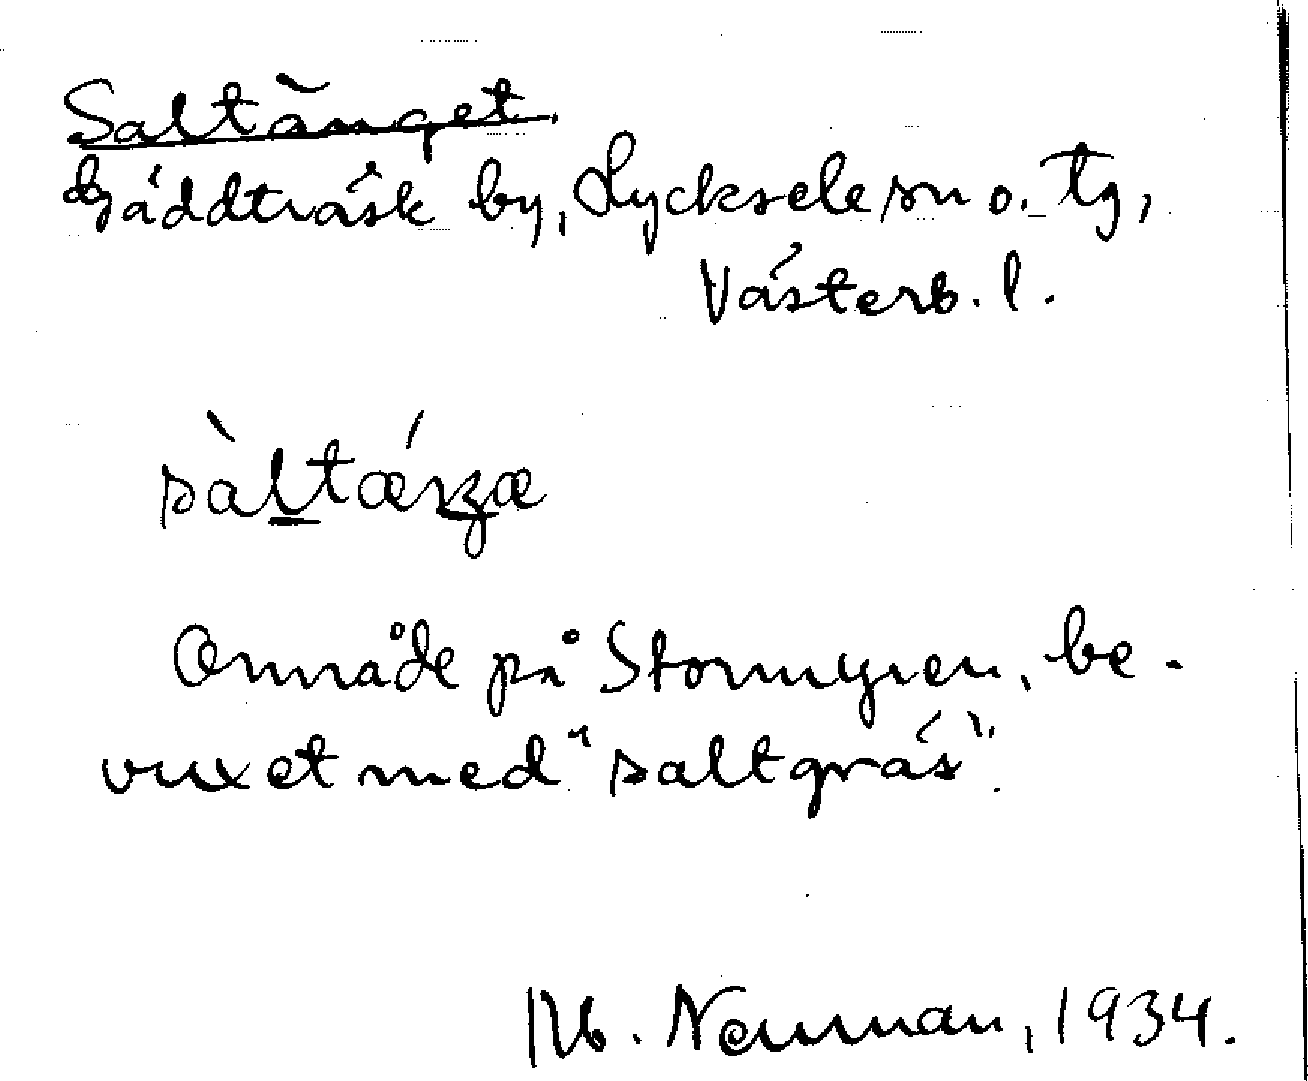 Saltänget.
Gäddträsk by, Lycksele sn o. tg,
Västerb. l.
sàltǽŋæ
Område på Stormyren, be-
vuxet med "saltgräs".
M. Neuman, 1934.